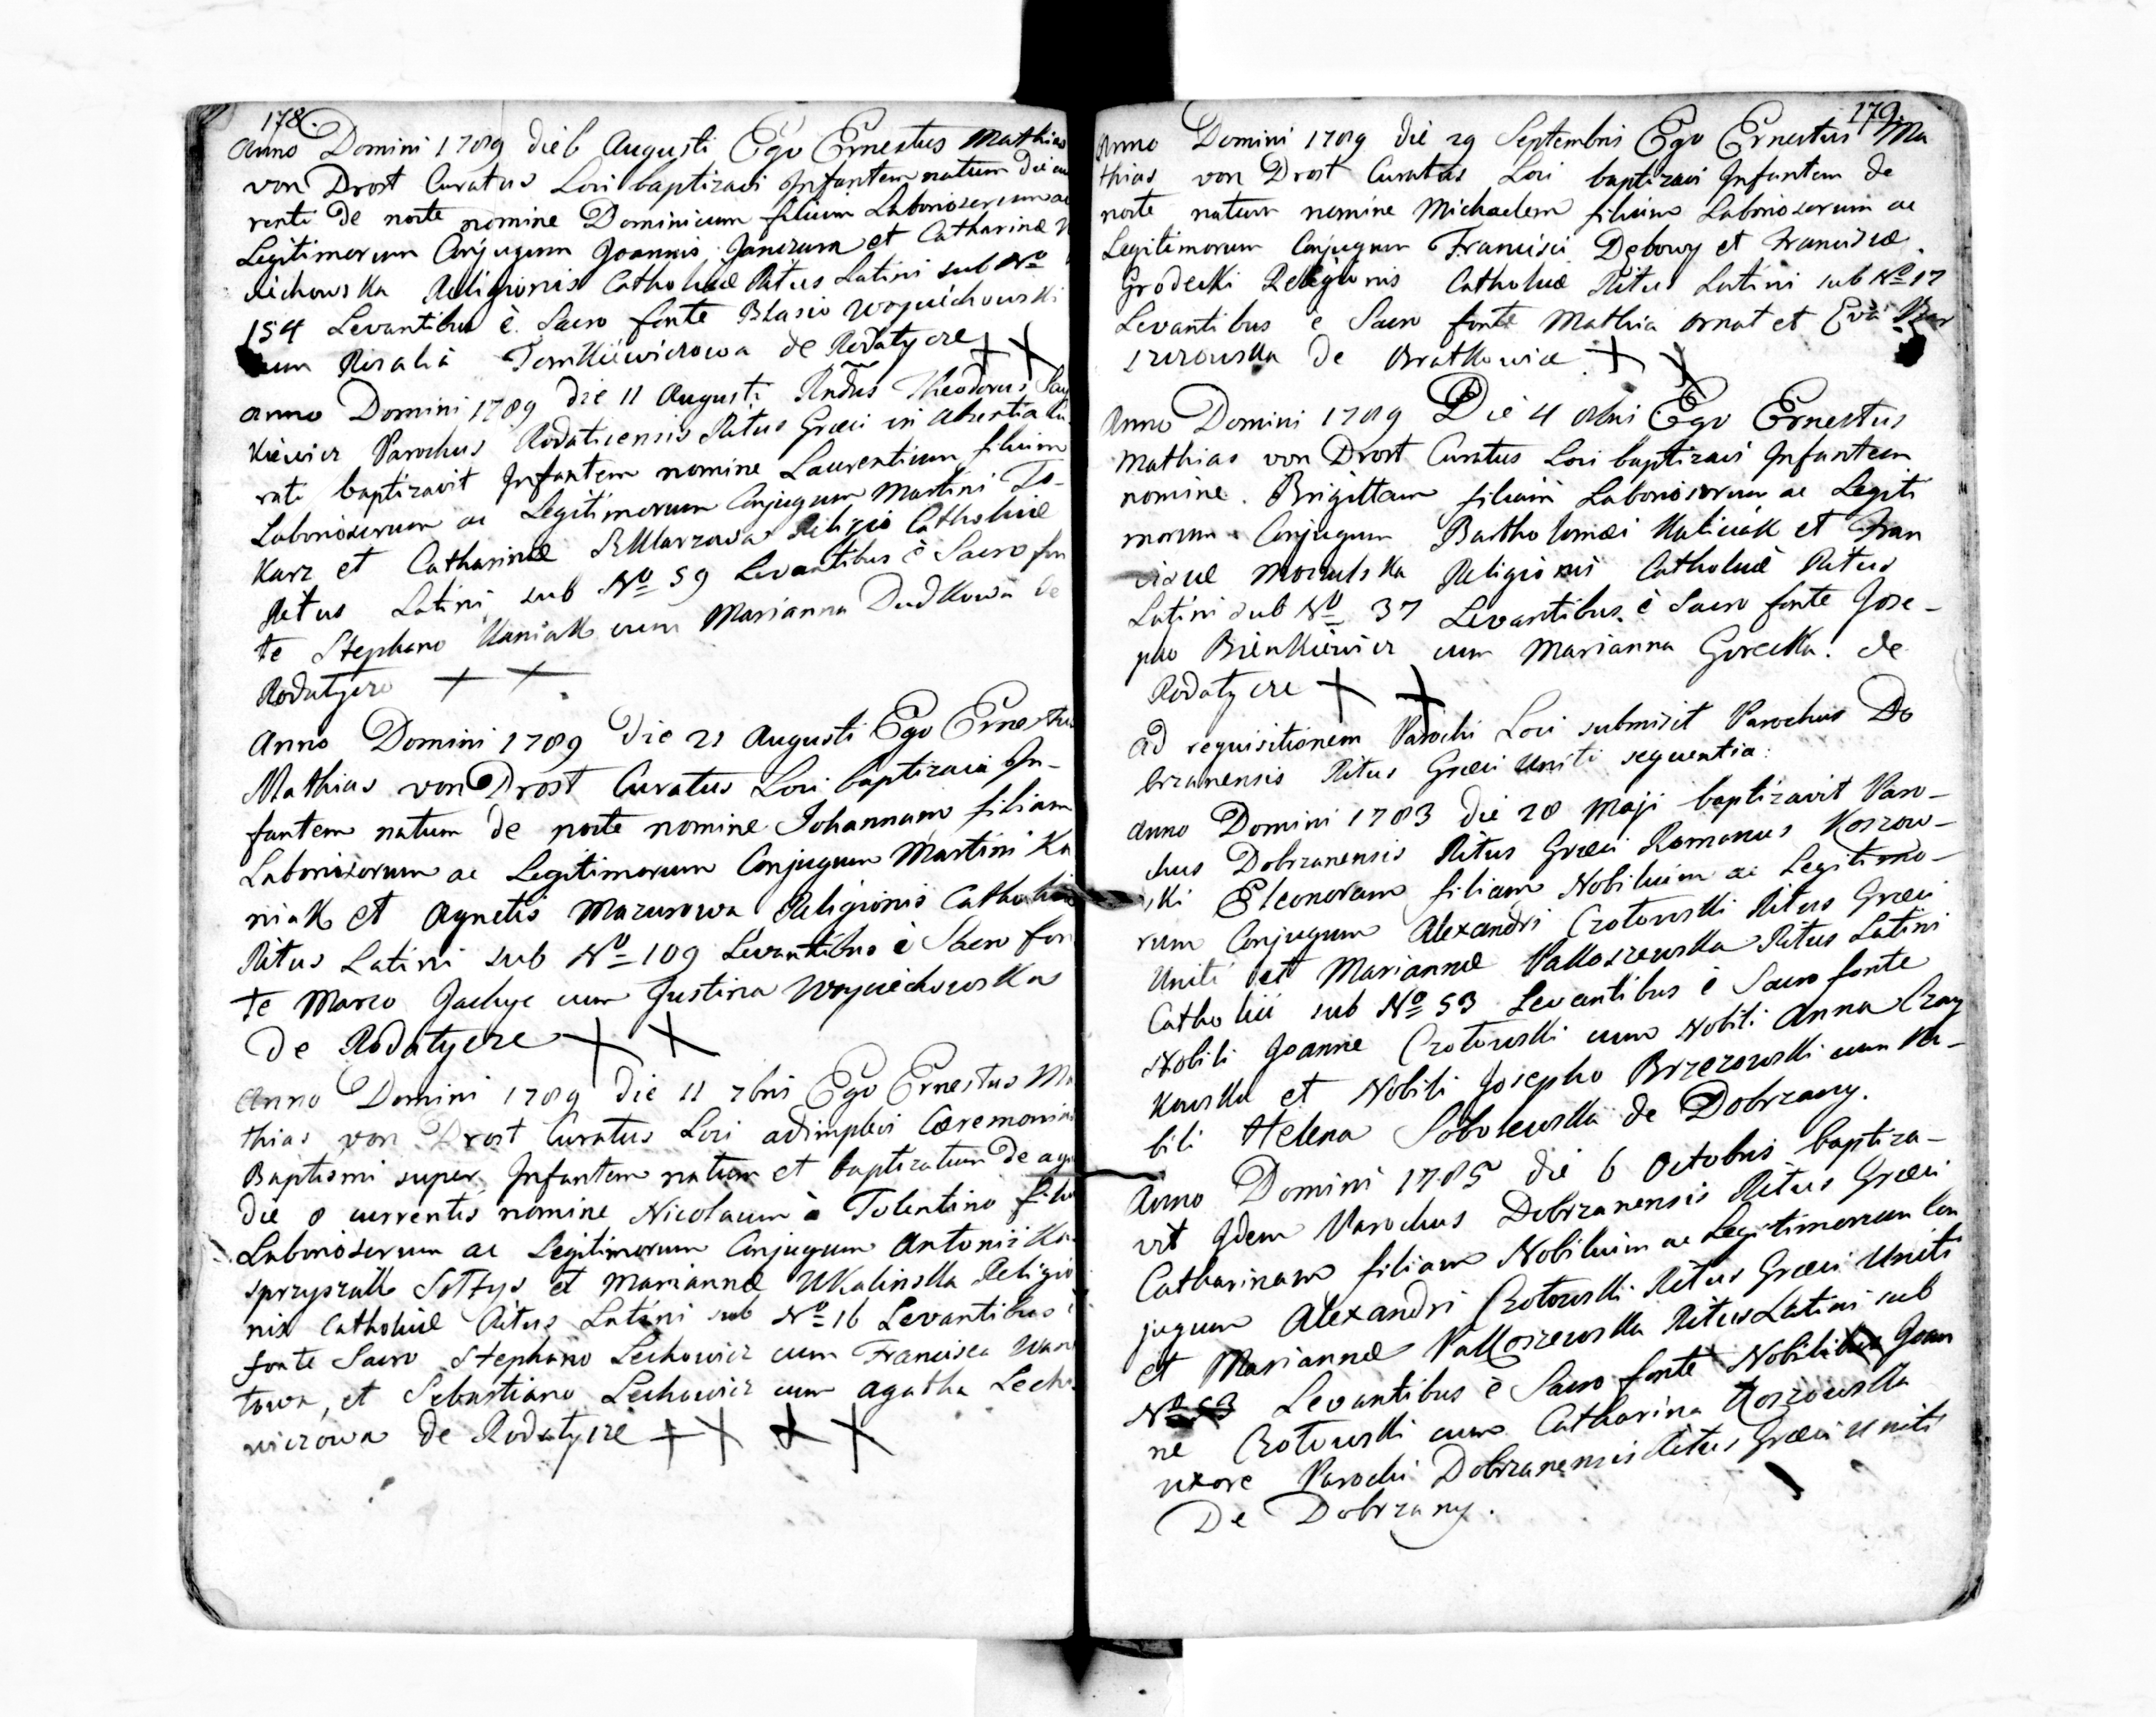 178.
Anno Domini 1789 die 6 Augusti Ego Ernestus Mathias
von Drost Curatus Loci baptizavi Infantem natum die cu
renti de nocte nomine Dominicum filium Laboriosorum ac
Legitimorum Conjugum Joannis Janczura et Catharinæ
ciechowska Religionis Catholicæ Ritus Latini sub No
154 Levantibus è Sacro fonte Blasio Woyciechowski
cum Rosalia Tomkiewiczowa de Rodatycze
Anno Domini 1789 die 11 Augusti Rndus Theodorus
Kiewicz Parochus Rodaticensis Ritus Græci in absentia Cu
rati baptizavit Infantem nomine Laurentium filium
Laboriosorum ac Legitimorum Conjugum Martini To-
karz et Catharinæ Religio Catholicæ
Ritus Latini sub No 59 Levantibus è Sacro fon
te Stephano Kaniak cum Marianna Dudkowa de
Rodatycze
Anno Domini 1789 die 21 Augusti Ego Ernestus
Mathias von Drost Curatus Loci baptizavi In-
fantem natum de nocte nomine Johannam filiam
Laboriosorum ac Legitimorum Conjugum Martini Ka
niak et Agnetis Mazurowa Religionis Catholicæ
Ritus Latini sub No 109 Levantibus è Sacro fon
te Marco Jachyc cum Justina Woyciechowska
de Rodatycze
Anno Domini 1789 die 11 7bris Ego Ernestus Ma
thias von Drost Curatus Loci adimplevi Cæremonias
Baptismi super Infantem natum et baptizatum de aqu
die 8 currentis nomine Nicolaum à Tolentino filiu
Laboriosorum ac Legitimorum Conjugum Antonii Ka
sprzyszak Sołtys et Mariannæ Ukalinska Religio
nis Catholicæ Ritus Latini sub No 16 Levantibus è
fonte Sacro Stephano Lechowicz cum Francisca
towa, et Sebastiano Lechowicz cum Agatha Lecho
wiczowa de Rodatycze
179.
Anno Domini 1789 die 29 Septembris Ego Ernestus Ma
thias von Drost Curatus Loci baptizavi Infantem de
nocte natum nomine Michaelem filium Laboriosorum ac
Legitimorum Conjugum Francisci Dębowy et Franciscæ
Grodecki Religionis Catholicæ Ritus Latini sub No 17
Levantibus è Sacro fonte Mathia Ornat et Eva
de Bratkowice
Anno Domini 1789 Die 4 8bris Ego Ernestus
Mathias von Drost Curatus Loci baptizavi Infantem
nomine Brigittam filiam Laboriosorum ac Legiti
morum Conjugum Bartholomæi Kaliciak et Fran
ciscæ Mozulska Religionis Catholicæ Ritus
Latini sub No 37 Levantibus è Sacro fonte Jose-
pho Bienkiewicz cum Marianna Gorecka de
Rodatycze
Ad requisitionem Parochi Loci submisit Parochus Do
brzanensis Ritus Græci Uniti sequentia:
Anno Domini 1783 die 28 Maji baptizavit Paro-
chus Dobrzanensis Ritus Græci Romanus Koszow-
ski Eleonoram filiam Nobilium ac Legitimo-
rum Conjugum Alexandri Czotowski Ritus Græci
Uniti et Mariannæ Pakoszewska Ritus Latini
Catholici sub No 53 Levantibus è Sacro fonte
Nobili Joanne Czotowski cum Nobili Anna Czay
kowska et Nobili Josepho Brzezowski cum No-
bili Helena Sobolewska de Dobrzany.
Anno Domini 1785 die 6 Octobris baptiza-
vit Idem Parochus Dobrzanensis Ritus Græci
Catharinam filiam Nobilium ac Legitimorum Con
jugum Alexandri Czotowski Ritus Græci Uniti
et Mariannæ Pakoszewska Ritus Latini sub
No 53 Levantibus è Sacro fonte Nobili Joan
ne Czotowski cum Catharina Koszowska
uxore Parochi Dobrzanensis Ritus Græci Uniti
De Dobrzany.